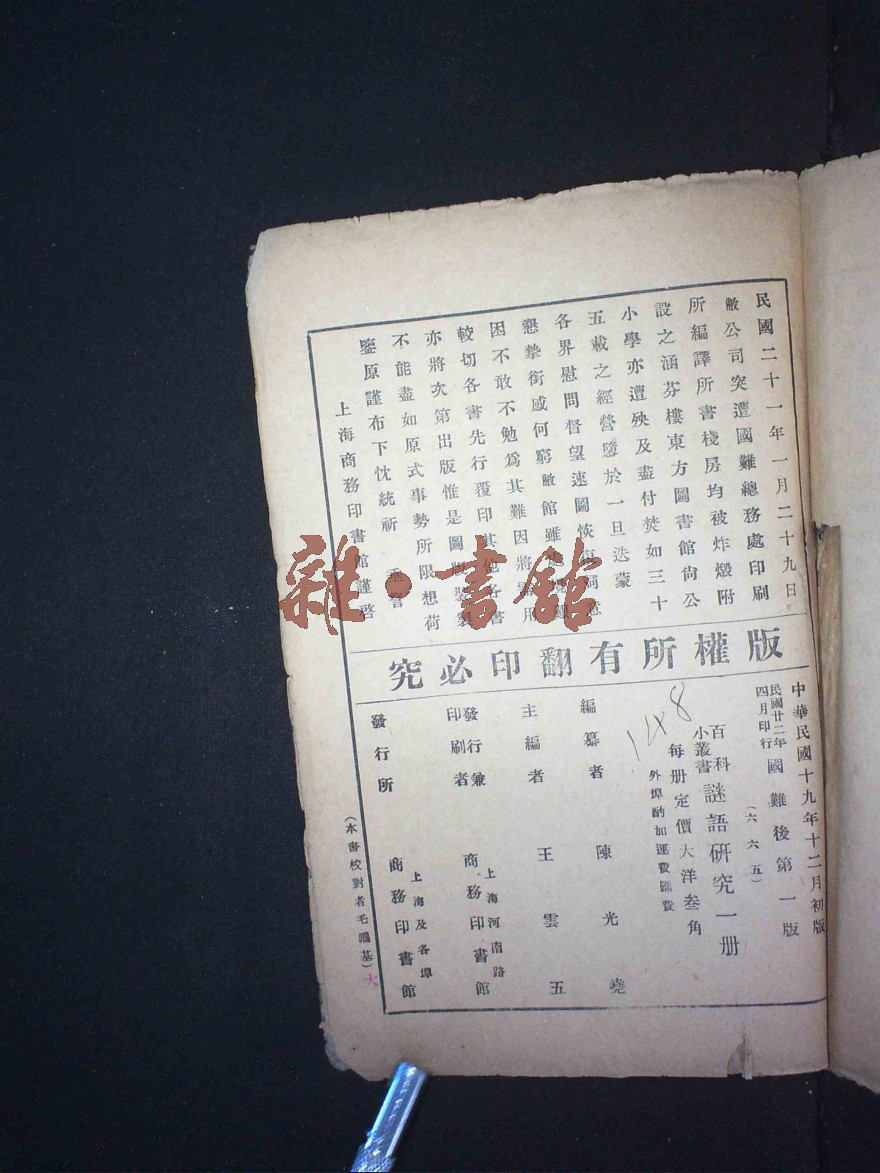 民國二十一年一月二十九日
敝公司突遭國難總務處印刷
所編譯所書棧房均被炸燬附
設之涵芬樓東方圖書館尙公
小學亦遭殃及盡付焚如三十
五載之經營隳於一旦迭蒙
各界慰問督望速圖恢復詞意
懇摯銜感何窮敝館雖處境艱
困不敢不勉爲其難因將需用
較切各書先行覆印其他各書
亦將次第出版惟是圖版裝製
不能盡如原式事勢所限想荷
鑒原謹布下忱統祈 垂詧
上海商務印書館謹啓
版權所有翻印必究
中華民國十九年十二月初版
民國廿二年四月印行國難後第一版
(六六五)
百科小叢書謎語研究一册
每册定價大洋叁角
外埠酌加運費匯費
148
編纂者 陳光堯
主編者 王雲五
發行兼印刷者 上海河南路 商務印書館
發行所 上海及各埠 商務印書館
(本書校對者毛 基)大
雜·書館